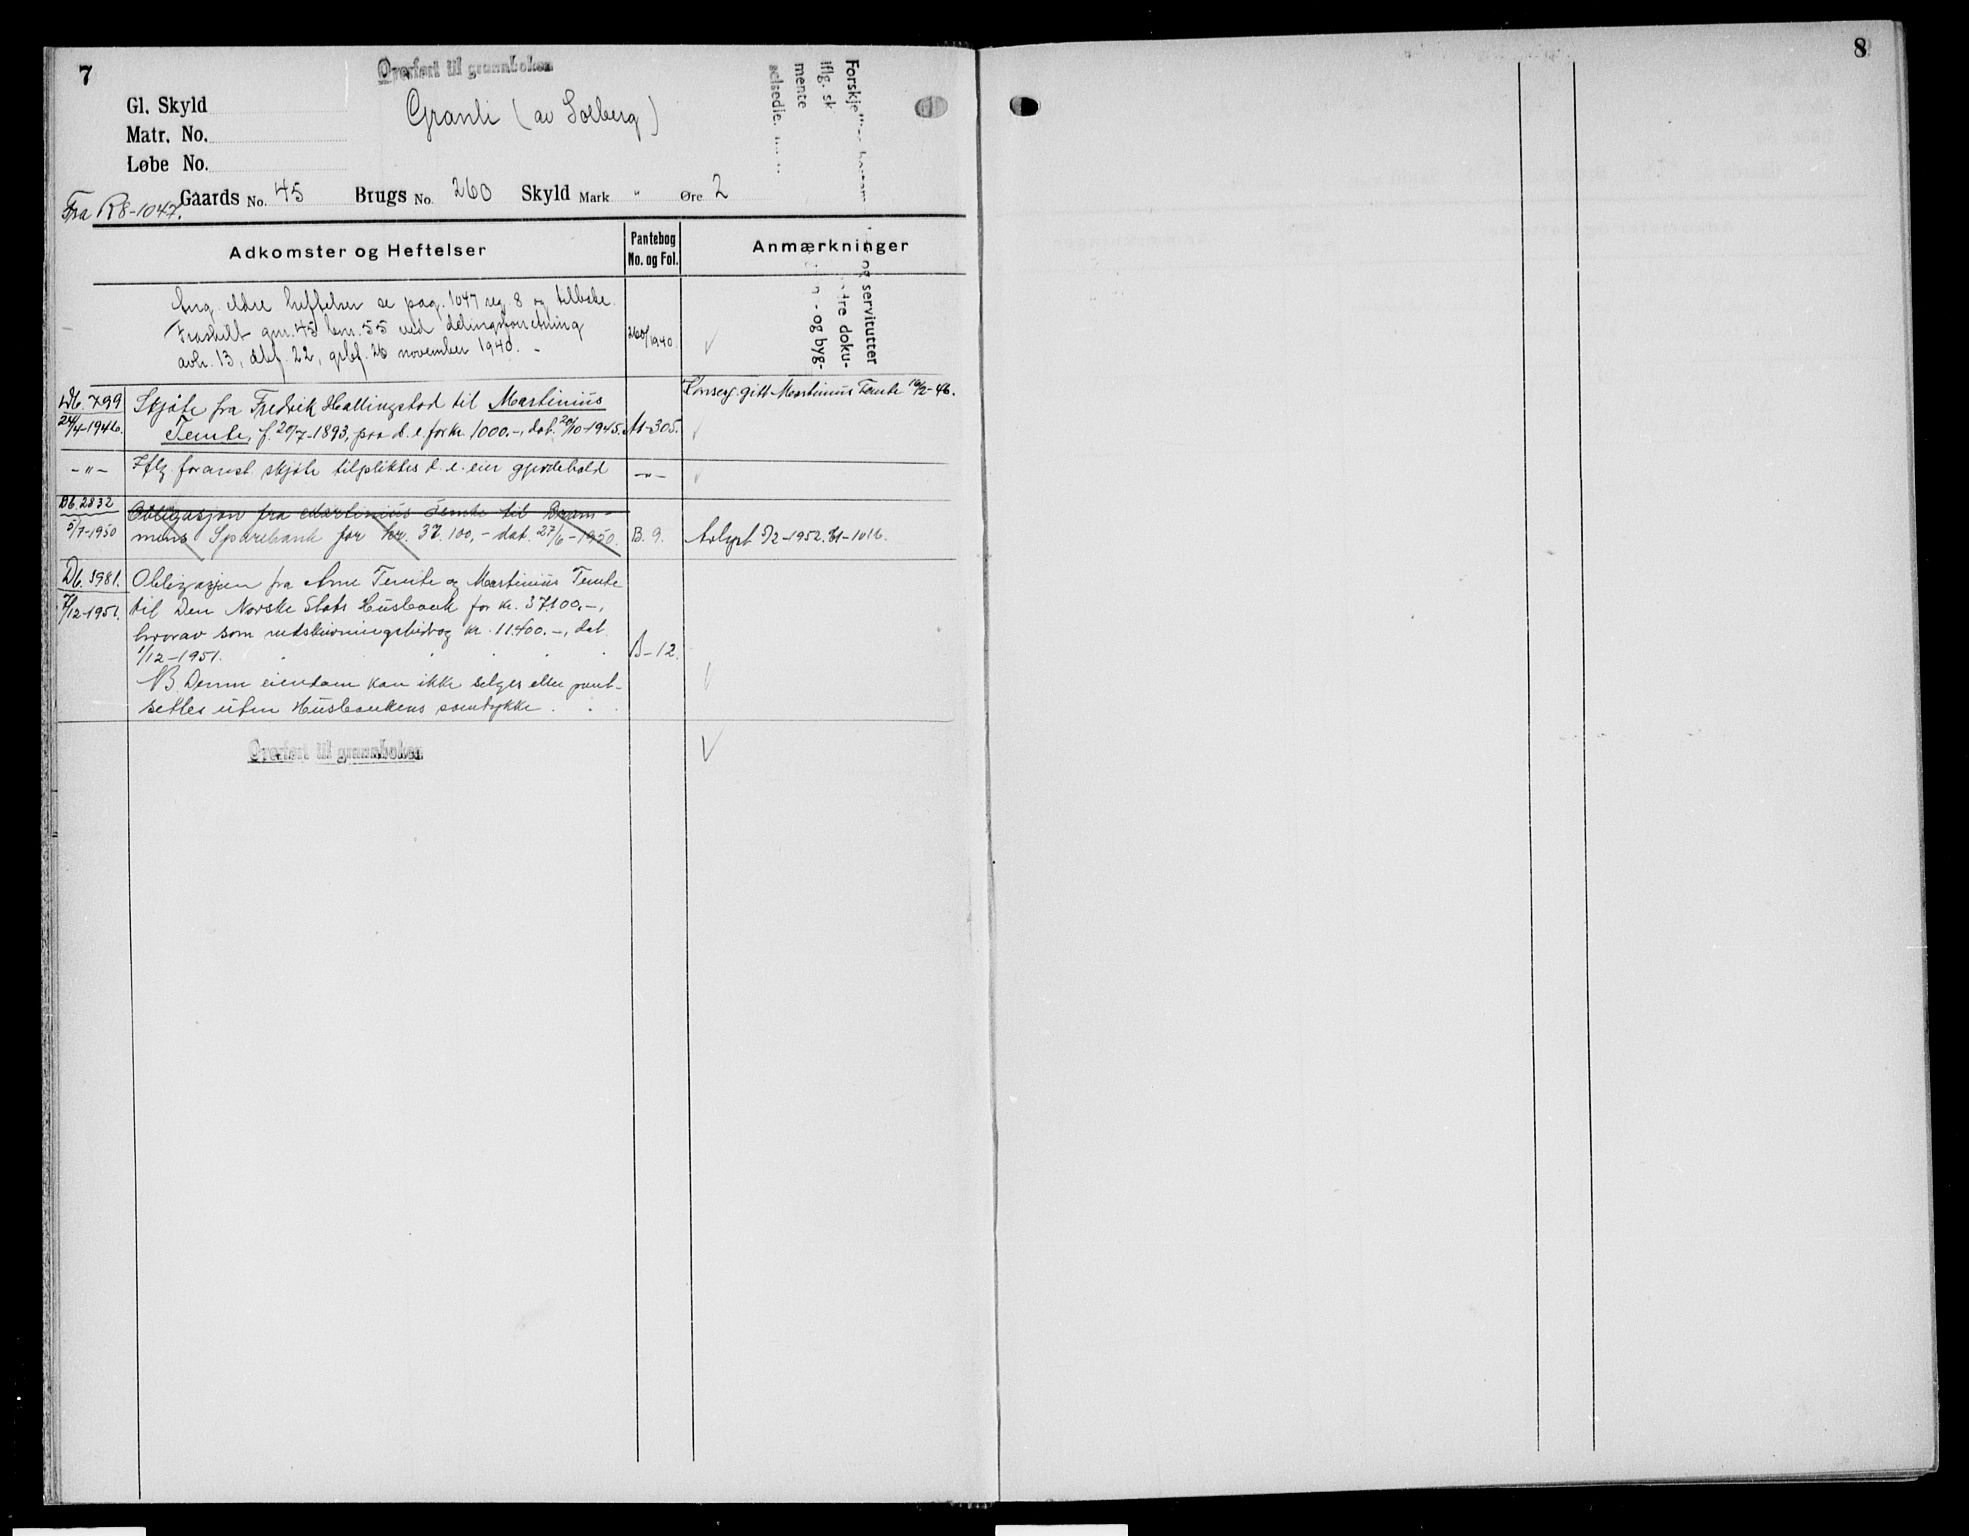 7
Overført til grunnboken
Gl. Skyld
Matr. No.
Løbe No.
Granli (av Solberg)
Fra R8-1047.
Gaards No. 45 Brugs No. 260 Skyld Mark " Øre 2
Forskjellige bestem og servitutter
iflg. sk dre doku-
mente n- og byg-
selsedle.
Adkomster og Heftelser
Pantebog
No. og Fol.
Anmærkninger
Ang. eldre heftelser se pag. 1047 reg. 8 og tilbake.
Fraskilt gnr. 45 bnr. 55 ved delingsforretning
avh. 13, dbf. 22, grbf. 26 november 1940. -
260/1940.
Db. 799
24/4-1946.
Skjøte fra Fredrik Hallingstad til Martinius
Temte, f. 20/7-1893, paa d. e. for kr. 1000.-, dat. 20/10-1945.
A1-305.
Konsesj. gitt Martinius Temte 12/2-46.
- " -
Iflg. foranst. skjøte tilpliktes d. e. eier gjerdehold
- " -
Db. 2832
5/7-1950
Obligasjon fra Martinius Temte til Dram-
mens Sparebank for kr. 37.100,- dat. 27/6-1950.
B. 9.
Avlyst 7/2-1952. A1-1016.
Db. 5981.
7/12-1951.
Obligasjon fra Arne Temte og Martinius Temte
til Den Norske Stats Husbank for kr. 37.100.-,
hvorav som nedskrivningsbidrag kr. 11.400.-, dat.
1/12-1951.
B-12.
NB. Denne eiendom kan ikke selges eller pant-
settes uten Husbankens samtykke.
Overført til grunnboken
8